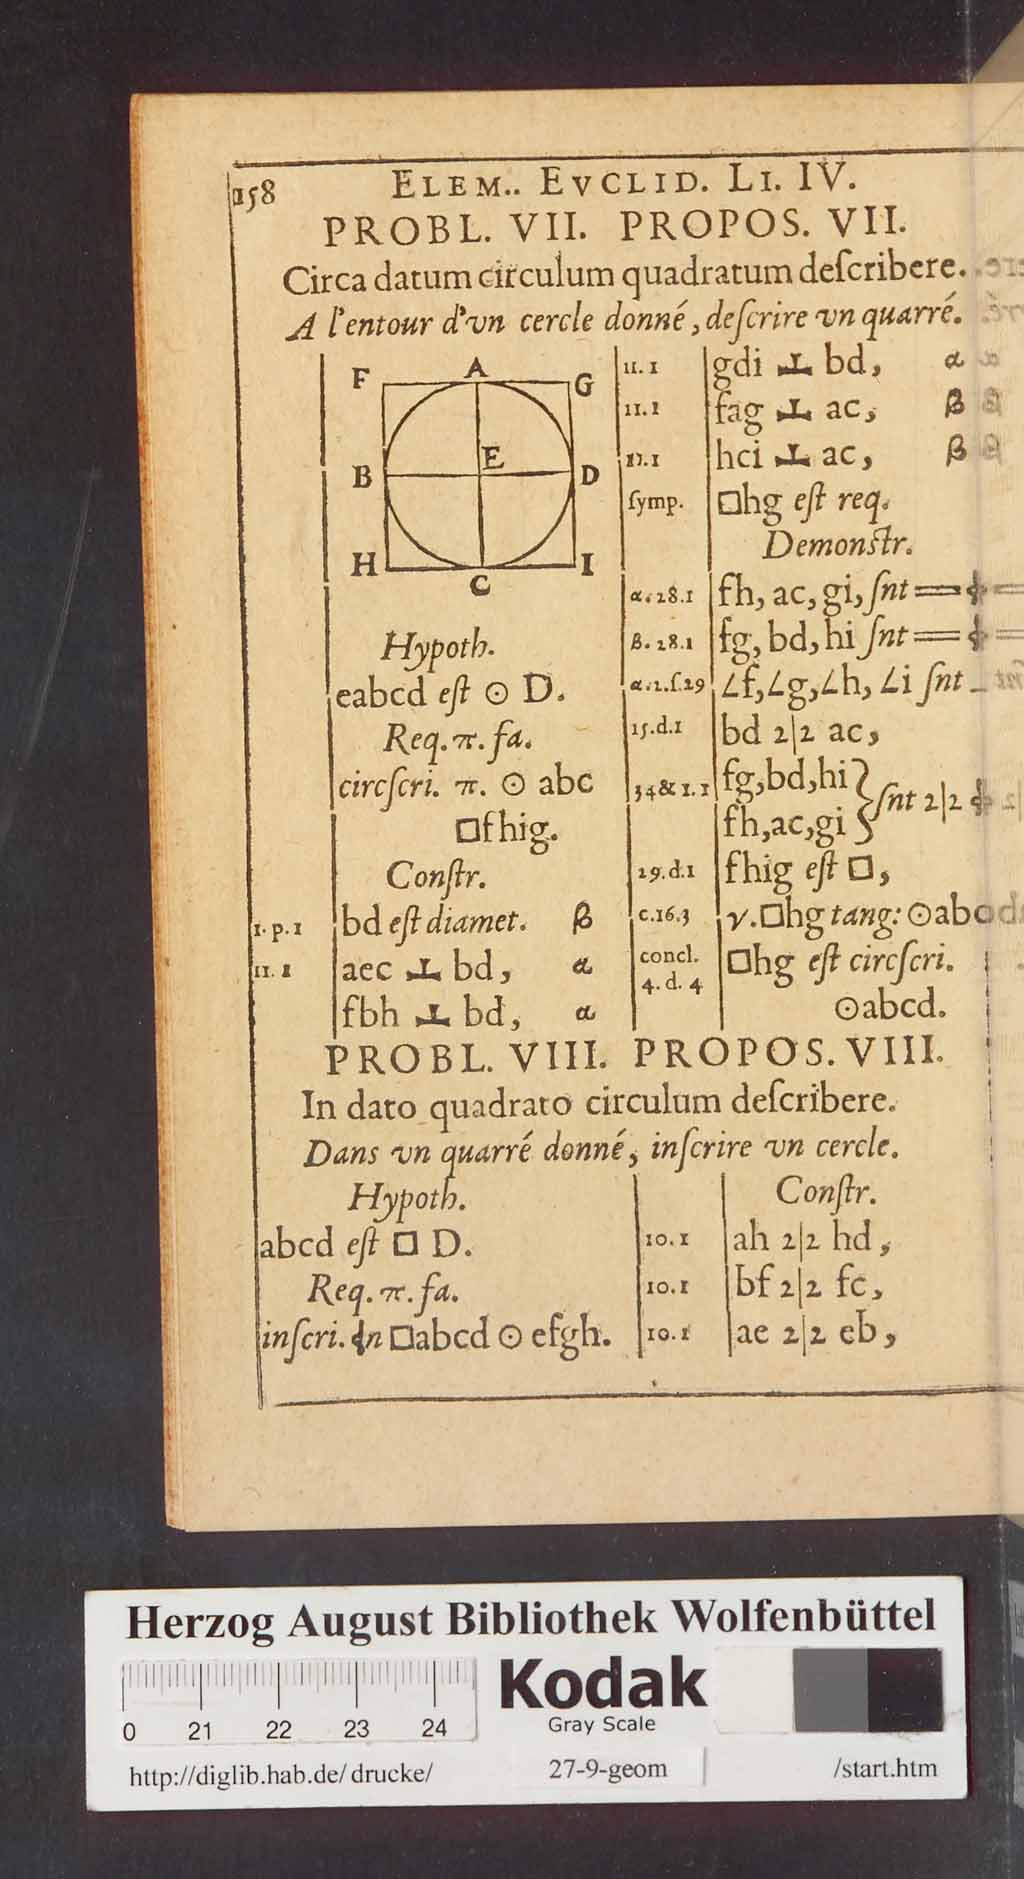 158
ELEM.. EVCLID. LI. IV.
PROBL. VII. PROPOS. VII.
Circa datum circulum quadratum deſcribere.
A l'entour d'vn cercle donné, deſcrire vn quarré.
F A G
B E D
H C I
Hypoth.
eabcd eſt ⊙ D.
Req. π. fa.
circſcri. π. ⊙ abc
□fhig.
Conſtr.
1. p. 1 bd eſt diamet. β
11. 1 aec ⊥ bd, α
fbh ⊥ bd, α
11. 1 gdi ⊥ bd, α
11. 1 fag ⊥ ac, β
11. 1 hci ⊥ ac, β
ſymp. □hg eſt req.
Demonſtr.
α. 28.1 fh, ac, gi, ſnt ==
β. 28.1 fg, bd, hi ſnt ==
α.2.ſ.29 ∠f,∠g,∠h, ∠i ſnt
15.d.1 bd 2|2 ac,
34&1.1 fg,bd,hi } ſnt 2|2
fh,ac,gi
29.d.1 fhig eſt □,
c.16.3 γ.□hg tang: ⊙abcd
concl. □hg eſt circſcri.
4. d. 4 ⊙abcd.
PROBL. VIII. PROPOS. VIII.
In dato quadrato circulum deſcribere.
Dans vn quarré donné, inſcrire vn cercle.
Hypoth.
abcd eſt □ D.
Req. π. fa.
inſcri. □abcd ⊙ efgh.
Conſtr.
10. 1 ah 2|2 hd,
10. 1 bf 2|2 fc,
10. 1 ae 2|2 eb,
Herzog August Bibliothek Wolfenbüttel
0 21 22 23 24
Kodak
Gray Scale
http://diglib.hab.de/drucke/ 27-9-geom /start.htm